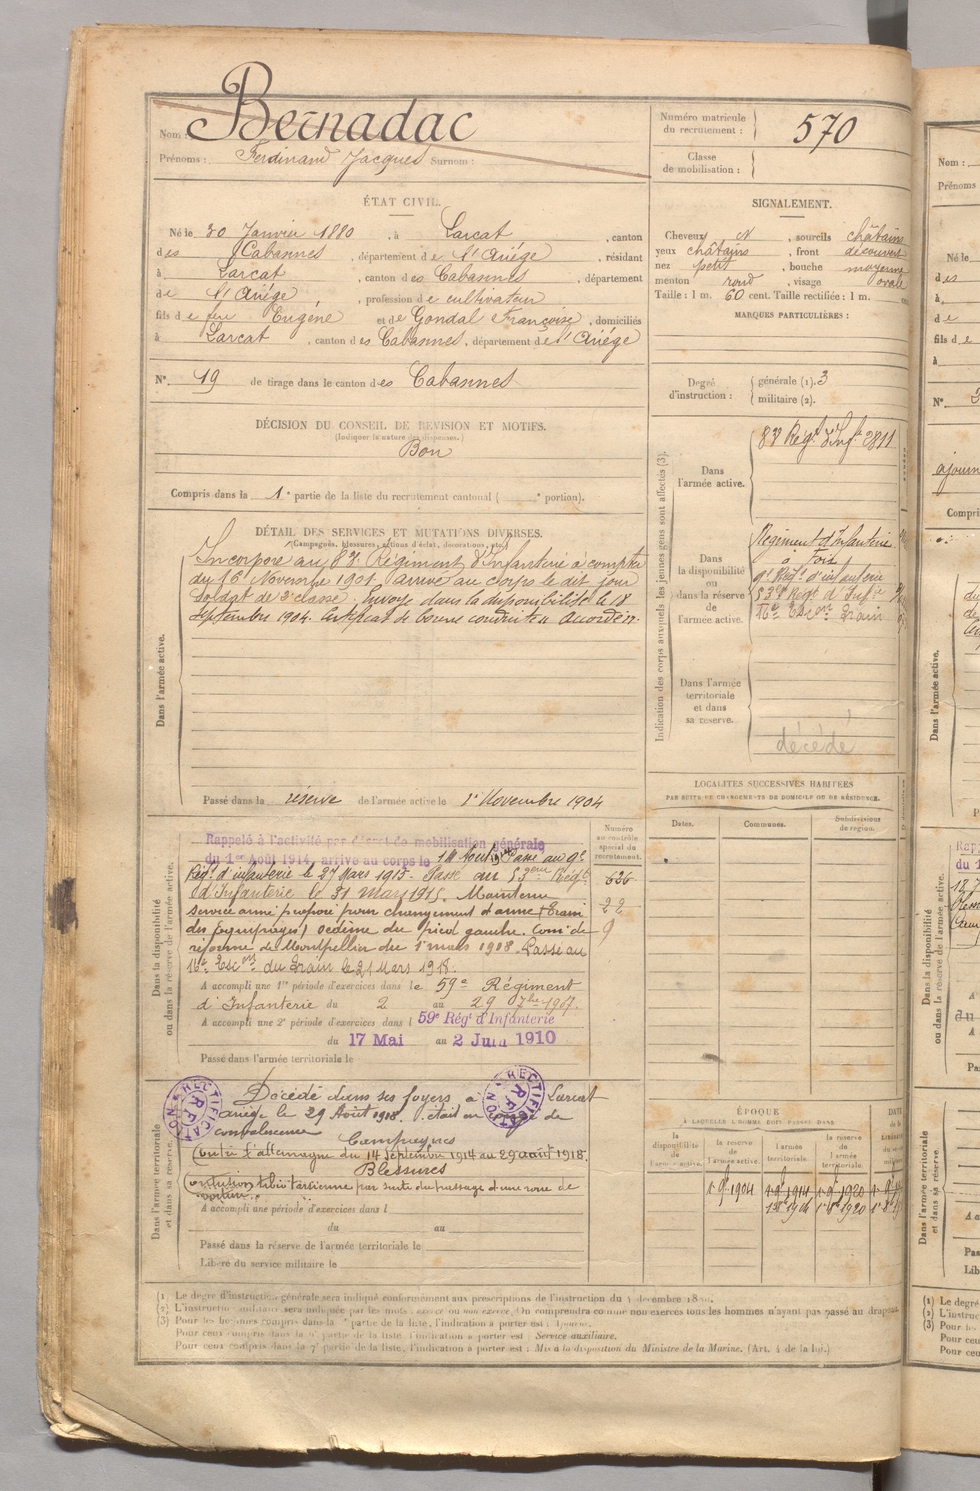 Nom : Bernadac
Prénoms : Ferdinand Jacques Surnom :
Numéro matricule
du recrutement : 570
Classe
de mobilisation :
ÉTAT CIVIL.
Né le 30 Janvier 1880, à Larcat, canton
des Cabannes, département de l'Ariége, résidant
à Larcat, canton des Cabannes, département
de l'Ariége, profession de cultivateur
fils de feu Eugène et de Gondal Françoise, domiciliés
à Larcat, canton des Cabannes, département de l'Ariége
N° 19 de tirage dans le canton des Cabannes
DÉCISION DU CONSEIL DE REVISION ET MOTIFS.
(Indiquer la nature des dispenses.)
Bon
Compris dans la 1e partie de la liste du recrutement cantonal ( e portion).
SIGNALEMENT.
Cheveux N, sourcils châtains
yeux châtains, front découvert
nez petit, bouche moyenne
menton rond, visage ovale
Taille : 1 m. 60 cent. Taille rectifiée : 1 m. cent.
MARQUES PARTICULIÈRES :
Degré
d'instruction :
générale (1). 3
militaire (2).
DÉTAIL DES SERVICES ET MUTATIONS DIVERSES.
(Campagnes, blessures, actions d'éclat, décorations, etc.)
Dans l'armée active.
Incorporé au 83e Régiment d'Infanterie à compter
du 16 Novembre 1901. arrivé au corps le dit jour
Soldat de 2e classe. Envoyé dans la disponibilité le 18
Septembre 1904. Certificat de bonne conduite accordé.
Passé dans la réserve de l'armée active le 1er Novembre 1904
Indication des corps auxquels les jeunes gens sont affectés (3).
Dans
l'armée active.
83e Régt d'Infie 2811
Dans
la disponibilité
ou dans la réserve
de
l'armée active.
Régiment d'Infanterie
à Foix
9e Régt d'infanterie
53e Régt d'Infie
16e Escon Train
Dans l'armée
territoriale
et dans
sa réserve.
décédé
LOCALITÉS SUCCESSIVES HABITÉES
PAR SUITE DE CHANGEMENTS DE DOMICILE OU DE RÉSIDENCE.
Dates.
Communes.
Subdivisions
de région.
Dans la disponibilité
ou dans la réserve de l'armée active.
Rappelé à l'activité par décret de mobilisation générale
du 1er Août 1914, arrivé au corps le Août 1914 Passé au 9e
Régt d'infanterie le 27 Mars 1915. Passé au 53ème Régt
d'Infanterie le 31 Mars 1915. Maintenu
service armé proposé pour changement d'arme (Train
des équipages) oedème du pied gauche. Comon de
réforme de Montpellier du 1er mars 1918. Passé au
16e Escon du Train le 21 Mars 1918.
Numéro
au contrôle
spécial du
recrutement.
626
22
9
A accompli une 1re période d'exercices dans le 59e Régiment
d'Infanterie du 2 au 29 7bre 1907.
A accompli une 2e période d'exercices dans l 59e Régt d'Infanterie
du 17 Mai au 2 Juin 1910
Passé dans l'armée territoriale le
Dans l'armée territoriale
et dans sa réserve.
RECTIFICATION R F
RECTIFICATION R F
Décédé dans ses foyers à Larcat
Ariège le 29 Août 1918. était en congé de
convalescence
Campagnes
Contre l'allemagne du 14 septembre 1914 au 29 août 1918.
Blessures
Contusion tibio tarsienne par suite du passage d'une roue de
voiture.
A accompli une période d'exercices dans l
du au
Passé dans la réserve de l'armée territoriale le
Libéré du service militaire le
ÉPOQUE
À LAQUELLE L'HOMME DOIT PASSER DANS
la
disponibilité
de
l'armée active.
la réserve
de
l'armée active.
l'armée
territoriale.
la réserve
de
l'armée
territoriale.
DATE
1er 9bre 1904
(1) Le degré d'instruction générale sera indiqué conformément aux prescriptions de l'instruction du 4 décembre 18
(2) L'instruction militaire sera indiquée par les mots : exercé ou non exercé. On comprendra comme non exercés tous les hommes n'ayant pas passé au drapeau.
(3) Pour les hommes compris dans la partie de la liste, l'indication à porter est : Ajourné.
Pour ceux compris dans la partie de la liste, l'indication à porter est : Service auxiliaire.
Pour ceux compris dans la 7e partie de la liste, l'indication à porter est : Mis à la disposition du Ministre de la Marine. (Art. 4 de la loi.)
Nom :
Prénoms
Né le
fils d e
N°
Compris
Dans l'armée active.